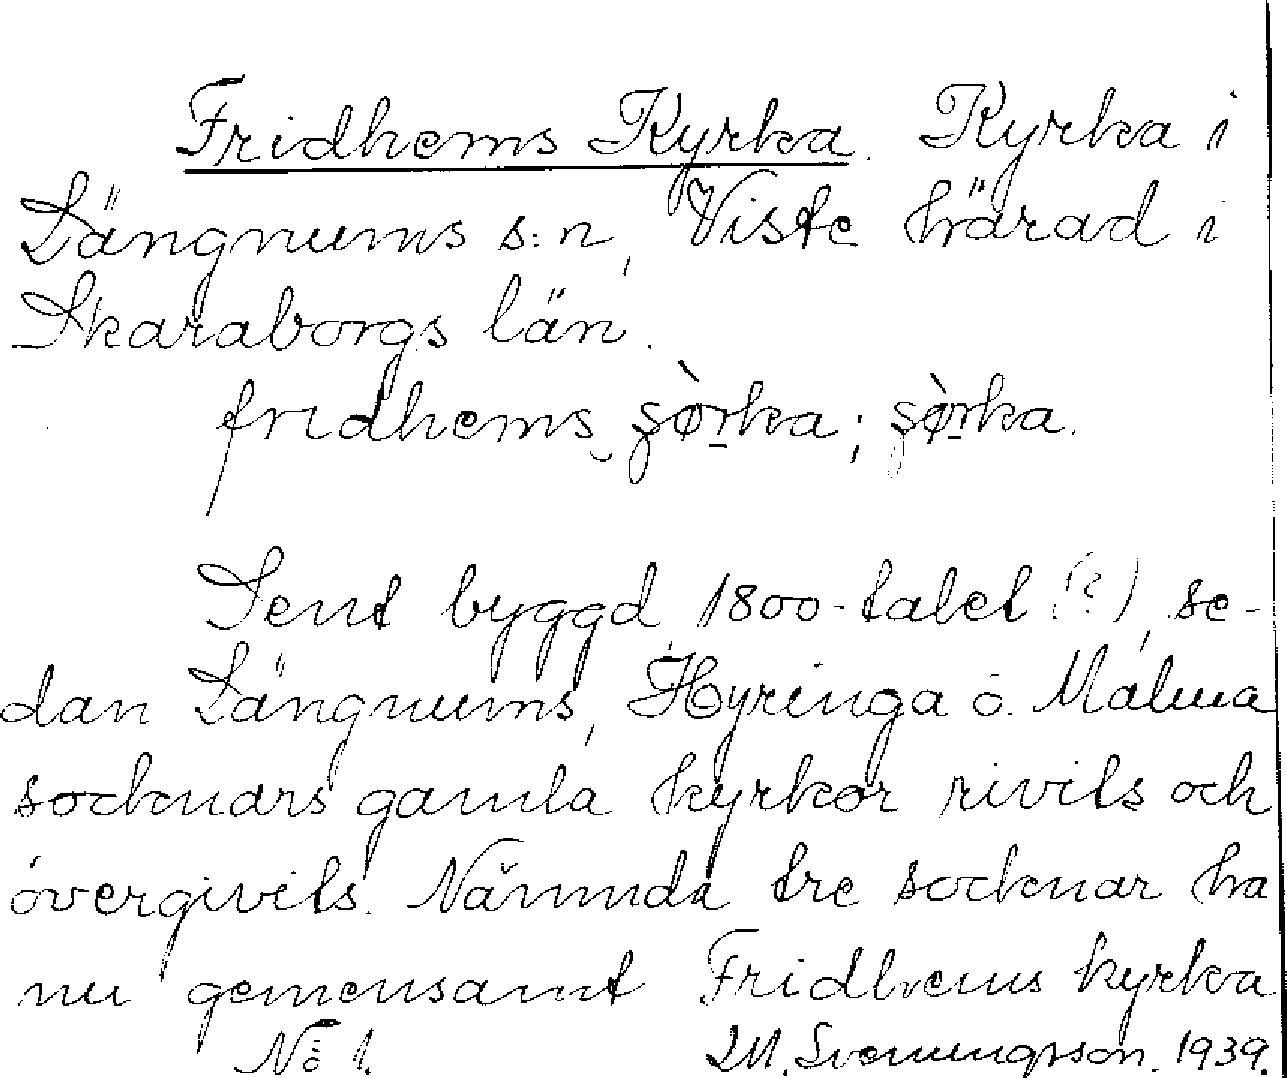 Fridhems Kyrka. Kyrka i
Längnums s:n, Viste härad i
Skaraborgs län.
fridhems‿şø̀rka; şø̀rka.
Sent byggd, 1800-talet (?), se-
dan Längnums, Hyringa o. Malma
socknars gamla kyrkor rivits och
övergivits. Nämnda tre socknar ha
nu gemensamt Fridhems kyrka
No 1. M. Svenungsson. 1939.